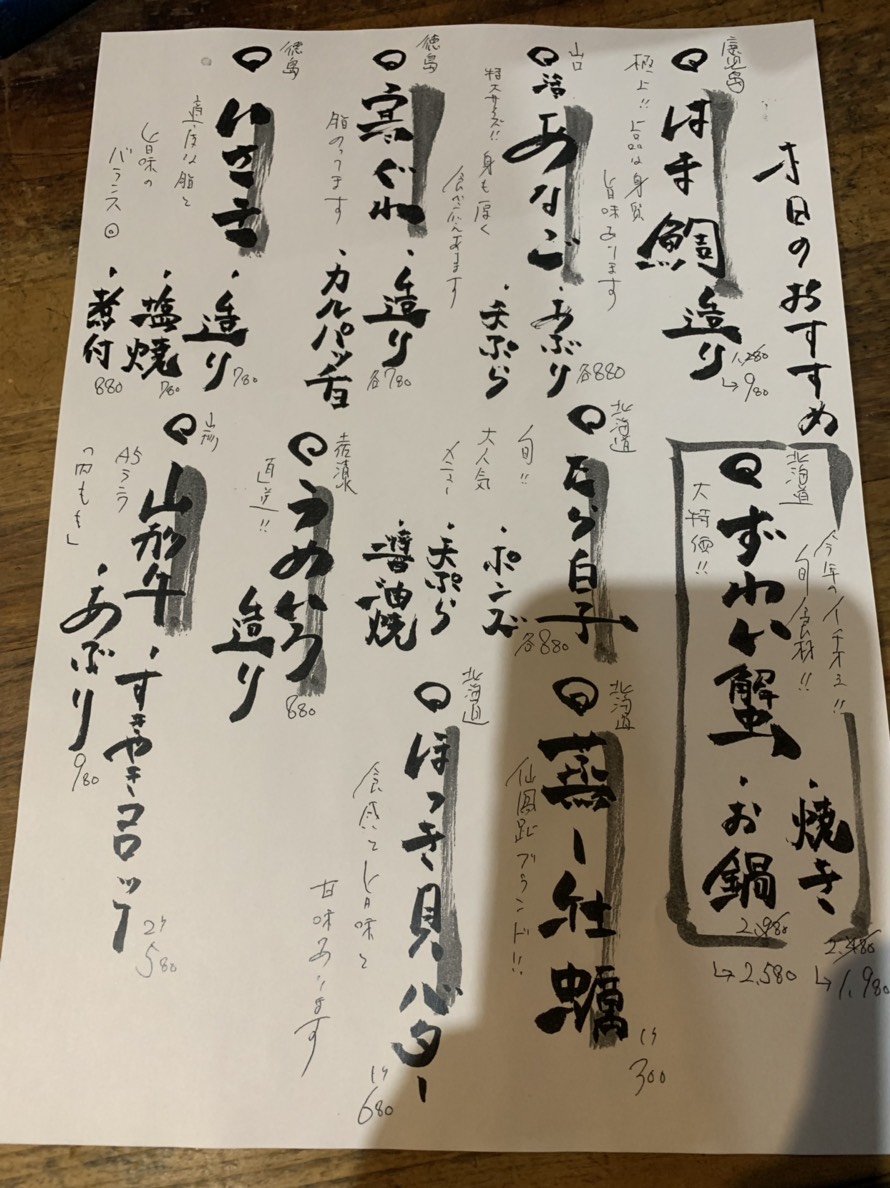 本日のおすすめ
鹿児島
はま鯛
極上!!上品な身質
旨味あります
造り
1,280
→980
山口
活あなご
特大サイズ!!身も厚く
食べ応えあります
・あぶり
・天ぷら
各880
徳島
寒ぐれ
脂のってます
・造り
・カルパッチョ
各780
徳島
いさき
適度な脂と
旨味の
バランス◎
・造り
780
・塩焼
780
・煮付
880
北海道
ずわい蟹
今年のイチオシ!!
旬食材!!
大特価!!
・焼き
2,480
→1,980
・お鍋
2,980
→2,580
北海道
たら白子
旬!!
大人気
メニュー
・ポンズ
・天ぷら
・醤油焼
各880
北海道
蒸し牡蠣
仙鳳趾ブランド!!
1ケ
300
北海道
ほっき貝バター
食感と旨味と
甘味あります
1ケ
680
うめいろ
直送!!
造り
880
山形
山形牛
A5ランク
「内もも」
・すきやきコロッケ
2ケ
580
・あぶり
980